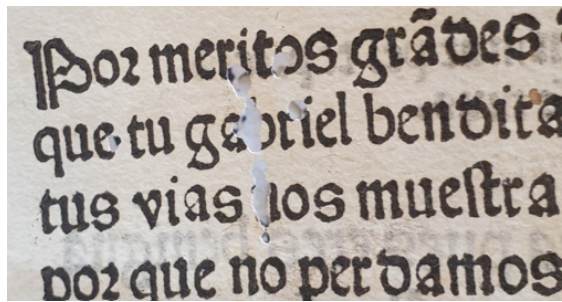 Por meritos grãdes
que tu gabriel bendita
tus vias nos mueſtra
por que no perdamos